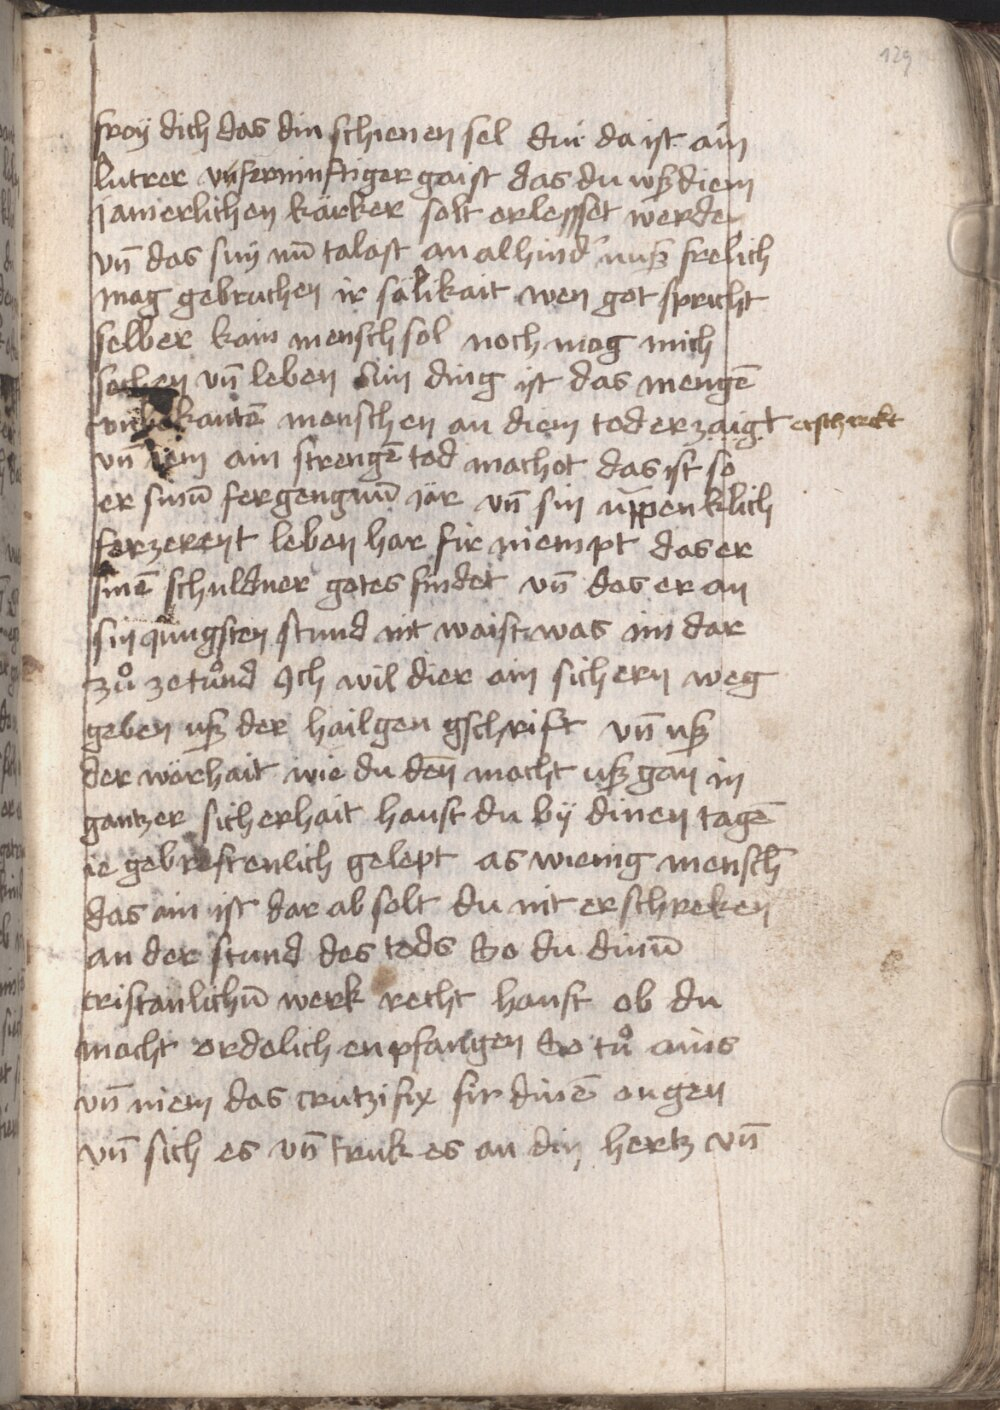 129
froÿ dich das din schienen sel dui da ist ain
lutrer vnferninftiger gaist das du uß diem
jamerlichen kärker solt erlesset werden
vn̄ das suÿ nū talast an all hind nuß frelich
mag gebruchen ir sälikait wen got spricht
selber kain mensch sol noch mag mich
sechen vn̄ leben ain ding ist das mengē
vnbekantē menschen an diem tod erzaigt erschreckt
vn̄ iem ain strengē tod machot das ist so
er sinū fergengnū jär vn̄ sin üppenklich
ferzerent leben har fir niempt das er
sinē schuldner gotes findet vn̄ das er an
sin qüngsten stund nit waist was im dar
zuͦ ze tuͦnd Ich wil dier ain sichern weg
geben uß der hailgen gschrift vn̄ uß
der wärhait wie du den̄ macht uß gan in
gantzer sicherhait haust du bÿ dinen tagē
ie gebrestenlich gelept as wienig mensch̄
das ain ist dar ab solt du nit erschreken
an der stund des tods So du dinū
cristanlichū werk recht haust ob du
macht ordelich enpfangen So tuͦ ains
vn̄ niem das crutzifix fir dinē ougen
vn̄ sich es vn̄ truk es an din hertz vn̄